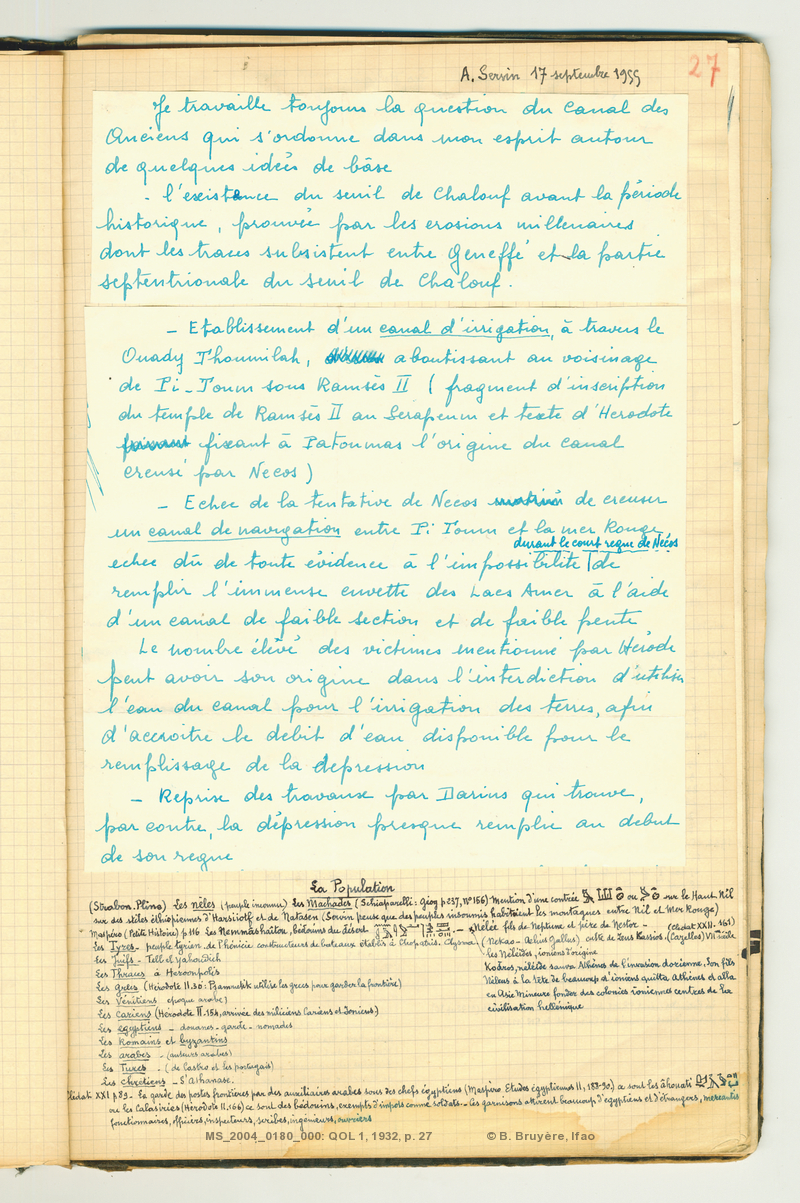 A. Servin 17 septembre 1955
27
Je travaille toujours la question du canal des
Anciens qui s'ordonne dans mon esprit autour
de quelques idées de bâse
- l'existence du seuil de Chalouf avant la période
historique, prouvée par les erosions millenaires
dont les traces subsistent entre Geneffé et la partie
septentrionale du seuil de Chalouf.
- Etablissement d'un canal d'irrigation, à travers le
Ouady Thoumilah, aboutissant au voisinage
de Pi-Toum sous Ramsès II (fragment d'inscription
du temple de Ramsès II au Serapeum et texte d'Herodote
fixant à Patoumas l'origine du canal
creusé par Necos)
- Echec de la tentative de Necos de creuser
un canal de navigation entre Pi Toum et la mer Rouge
durant le court regne de Nécos
echec dû de toute évidence à l'impossibilite | de
remplir l'immense cuvette des Lacs Amer à l'aide
d'un canal de faible section et de faible pente
Le nombre élévé des victimes mentionné par Hérode
peut avoir son origine dans l'interdiction d'utiliser
l'eau du canal pour l'irrigation des terres, afin
d'accroitre le debit d'eau disponible pour le
remplissage de la depression
- Reprise des travaux par Darius qui trouve,
par contre, la dépression presque remplie au debut
de son regne
La Population
(Strabon. Pline) Les nêles (peuple inconnu) Les Machades (Schiaparelli: Géog p 237, n° 166) Mention d'une contrée ou sur le Haut Nil
sur des stèles éthiopiennes d'Harsiiotf et de Natasen (Servin pense que des peuples insoumis habitaient les montagnes entre Nil et Mer Rouge)
Maspéro (Petite Histoire) p 116 Les Nemmashaïtou, bédouins du désert - Nélée fils de Neptune et père de Nestor - (Clédat XXII. 161)
Les Tyres - peuple tyrien, de Phénicie constructeurs de bateaux établis à Clysma. (Nekao - Aelius Gallus) culte de Zeus Kassios. (Cazelles) VII siècle
Les Juifs - Tell el Yahoudieh
Les Néleïdes, ioniens d'origine
Les Thraces à Heroonpolis
Kodros, néléïde sauva Athènes de l'invasion dorienne. Son fils
Les grecs (Hérodote II.30: Psammetik utilise les grecs pour garder la frontière)
Néleus à la tête de beaucoup d'ioniens quitta Athènes et alla
Les Vénitiens epoque arabe)
en Asie Mineure fonder des colonies ioniennes centres de la
Les Cariens (Hérodote II.154, arrivée des miliciens Cariens et Ioniens)
civilisation hellénique
Les égyptiens - douanes - garde - nomades
Les Romains et byzantins
Les arabes - (auteurs arabes)
Les Turcs - (de Castro et les portugais)
Les chretiens - St Athanase.
Clédat XXI p 83 - la garde des postes frontières par des auxiliaires arabes sous des chefs égyptiens (Maspero. Etudes égyptiennes II, 188-90.) ce sont les âhouati
ou les Calasiries (Hérodote II.166) ce sont des bédouins, exempts d'impots comme soldats. - Ces garnisons attirent beaucoup d'egyptiens et d'étrangers, mercantis
fonctionnaires, officiers, inspecteurs, scribes, ingénieurs, ouvriers
MS_2004_0180_000: QOL 1, 1932, p. 27 © B. Bruyère, Ifao